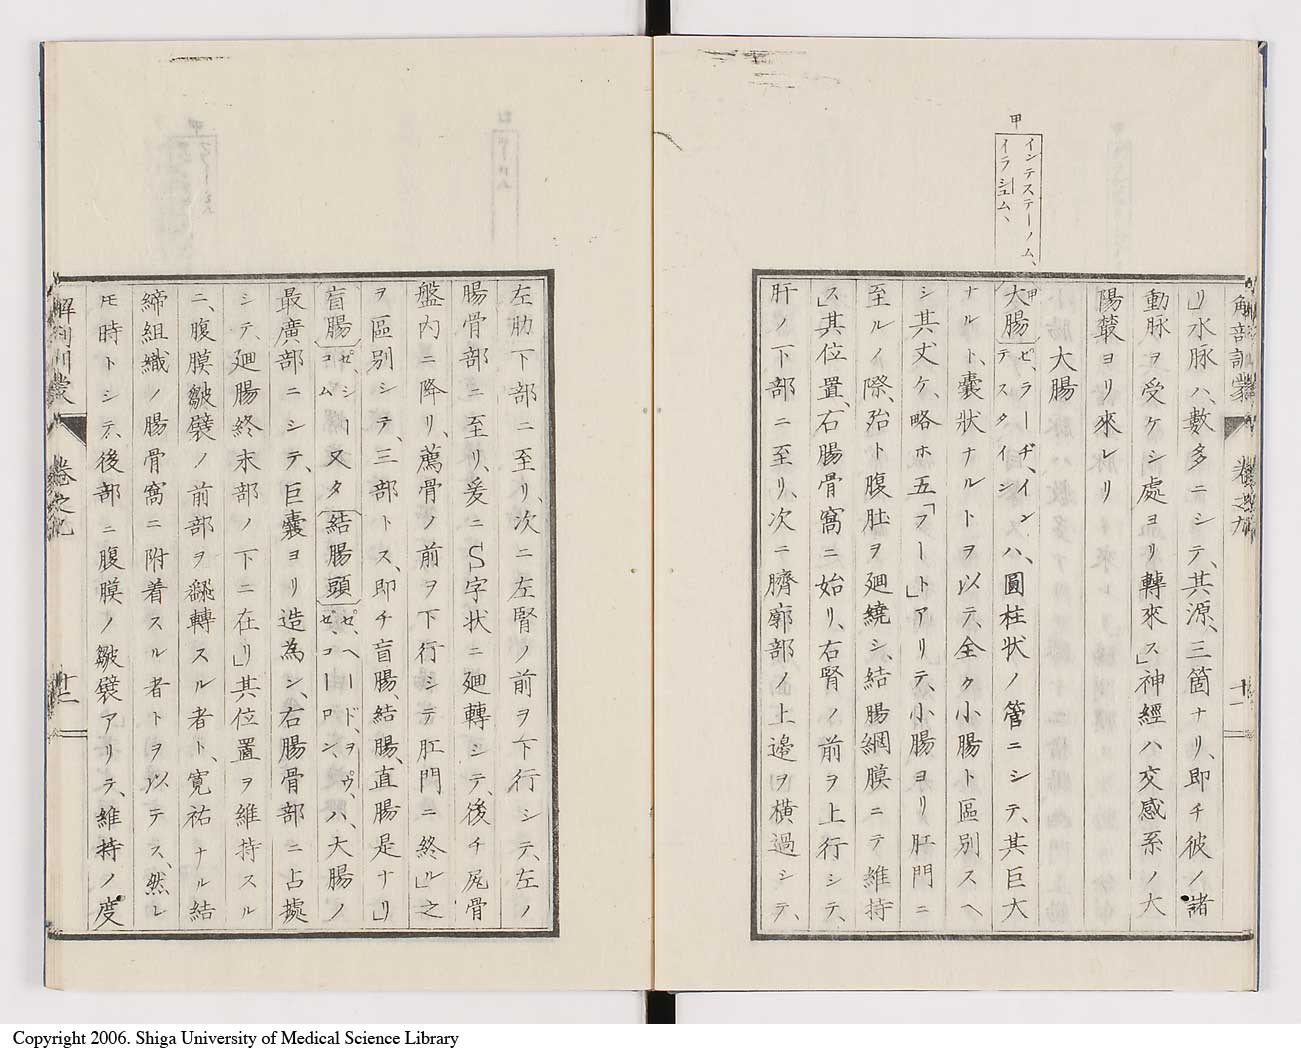 甲
インテステーノム、
イラシュム、
リ水脉ハ、數多ニシテ、其源、三箇ナリ、即チ彼ノ諸
動脉ヲ受ケシ處ヨリ轉來ス」神經ハ交感系ノ大
陽叢ヨリ來レリ
大腸
甲
大腸
ゼ、ラーヂ、イン、
テスタイン
ハ、圓柱状ノ管ニシテ、其巨大
ナルト、囊状ナルトヲ以テ、全ク小腸ト區別スヘ
シ其丈ケ、略ホ五「フート」アリテ、小腸ヨリ肛門ニ
至ルノ際、殆ト腹肚ヲ廻繞シ、結腸網膜ニテ維持
ス」其位置、右腸骨窩ニ始リ、右腎ノ前ヲ上行シテ、
肝ノ下部ニ至リ、次ニ臍廓部ノ上邊ヲ横過シテ、
解剖訓蒙
卷之九
十一
左肋下部ニ至リ、次ニ左腎ノ前ヲ下行シテ、左ノ
腸骨部ニ至リ、爰ニS字状ニ廻轉シテ、後チ尻骨
盤内ニ降リ、薦骨ノ前ヲ下行シテ肛門ニ終ル」之
ヲ區別シテ、三部トス、即チ盲腸、結腸、直腸是ナリ」
盲腸
ゼ、シー
コム
又タ結腸頭
ゼ、ヘード、ヲウ、
ゼ、コーロン、
ハ、大腸ノ
最廣部ニシテ、巨囊ヨリ造為シ、右腸骨部ニ占據
シテ、廻腸終末部ノ下ニ在リ」其位置ヲ維持スル
ニ、腹膜皺襞ノ前部ヲ飜轉スル者ト、寛祐ナル結
締組織ノ腸骨窩ニ附着スル者トヲ以テス、然レ
𪜈時トシテ、後部ニ腹膜ノ皺襞アリテ、維持ノ度
解剖訓蒙
卷之九
十二
Copyright 2006. Shiga University of Medical Science Library